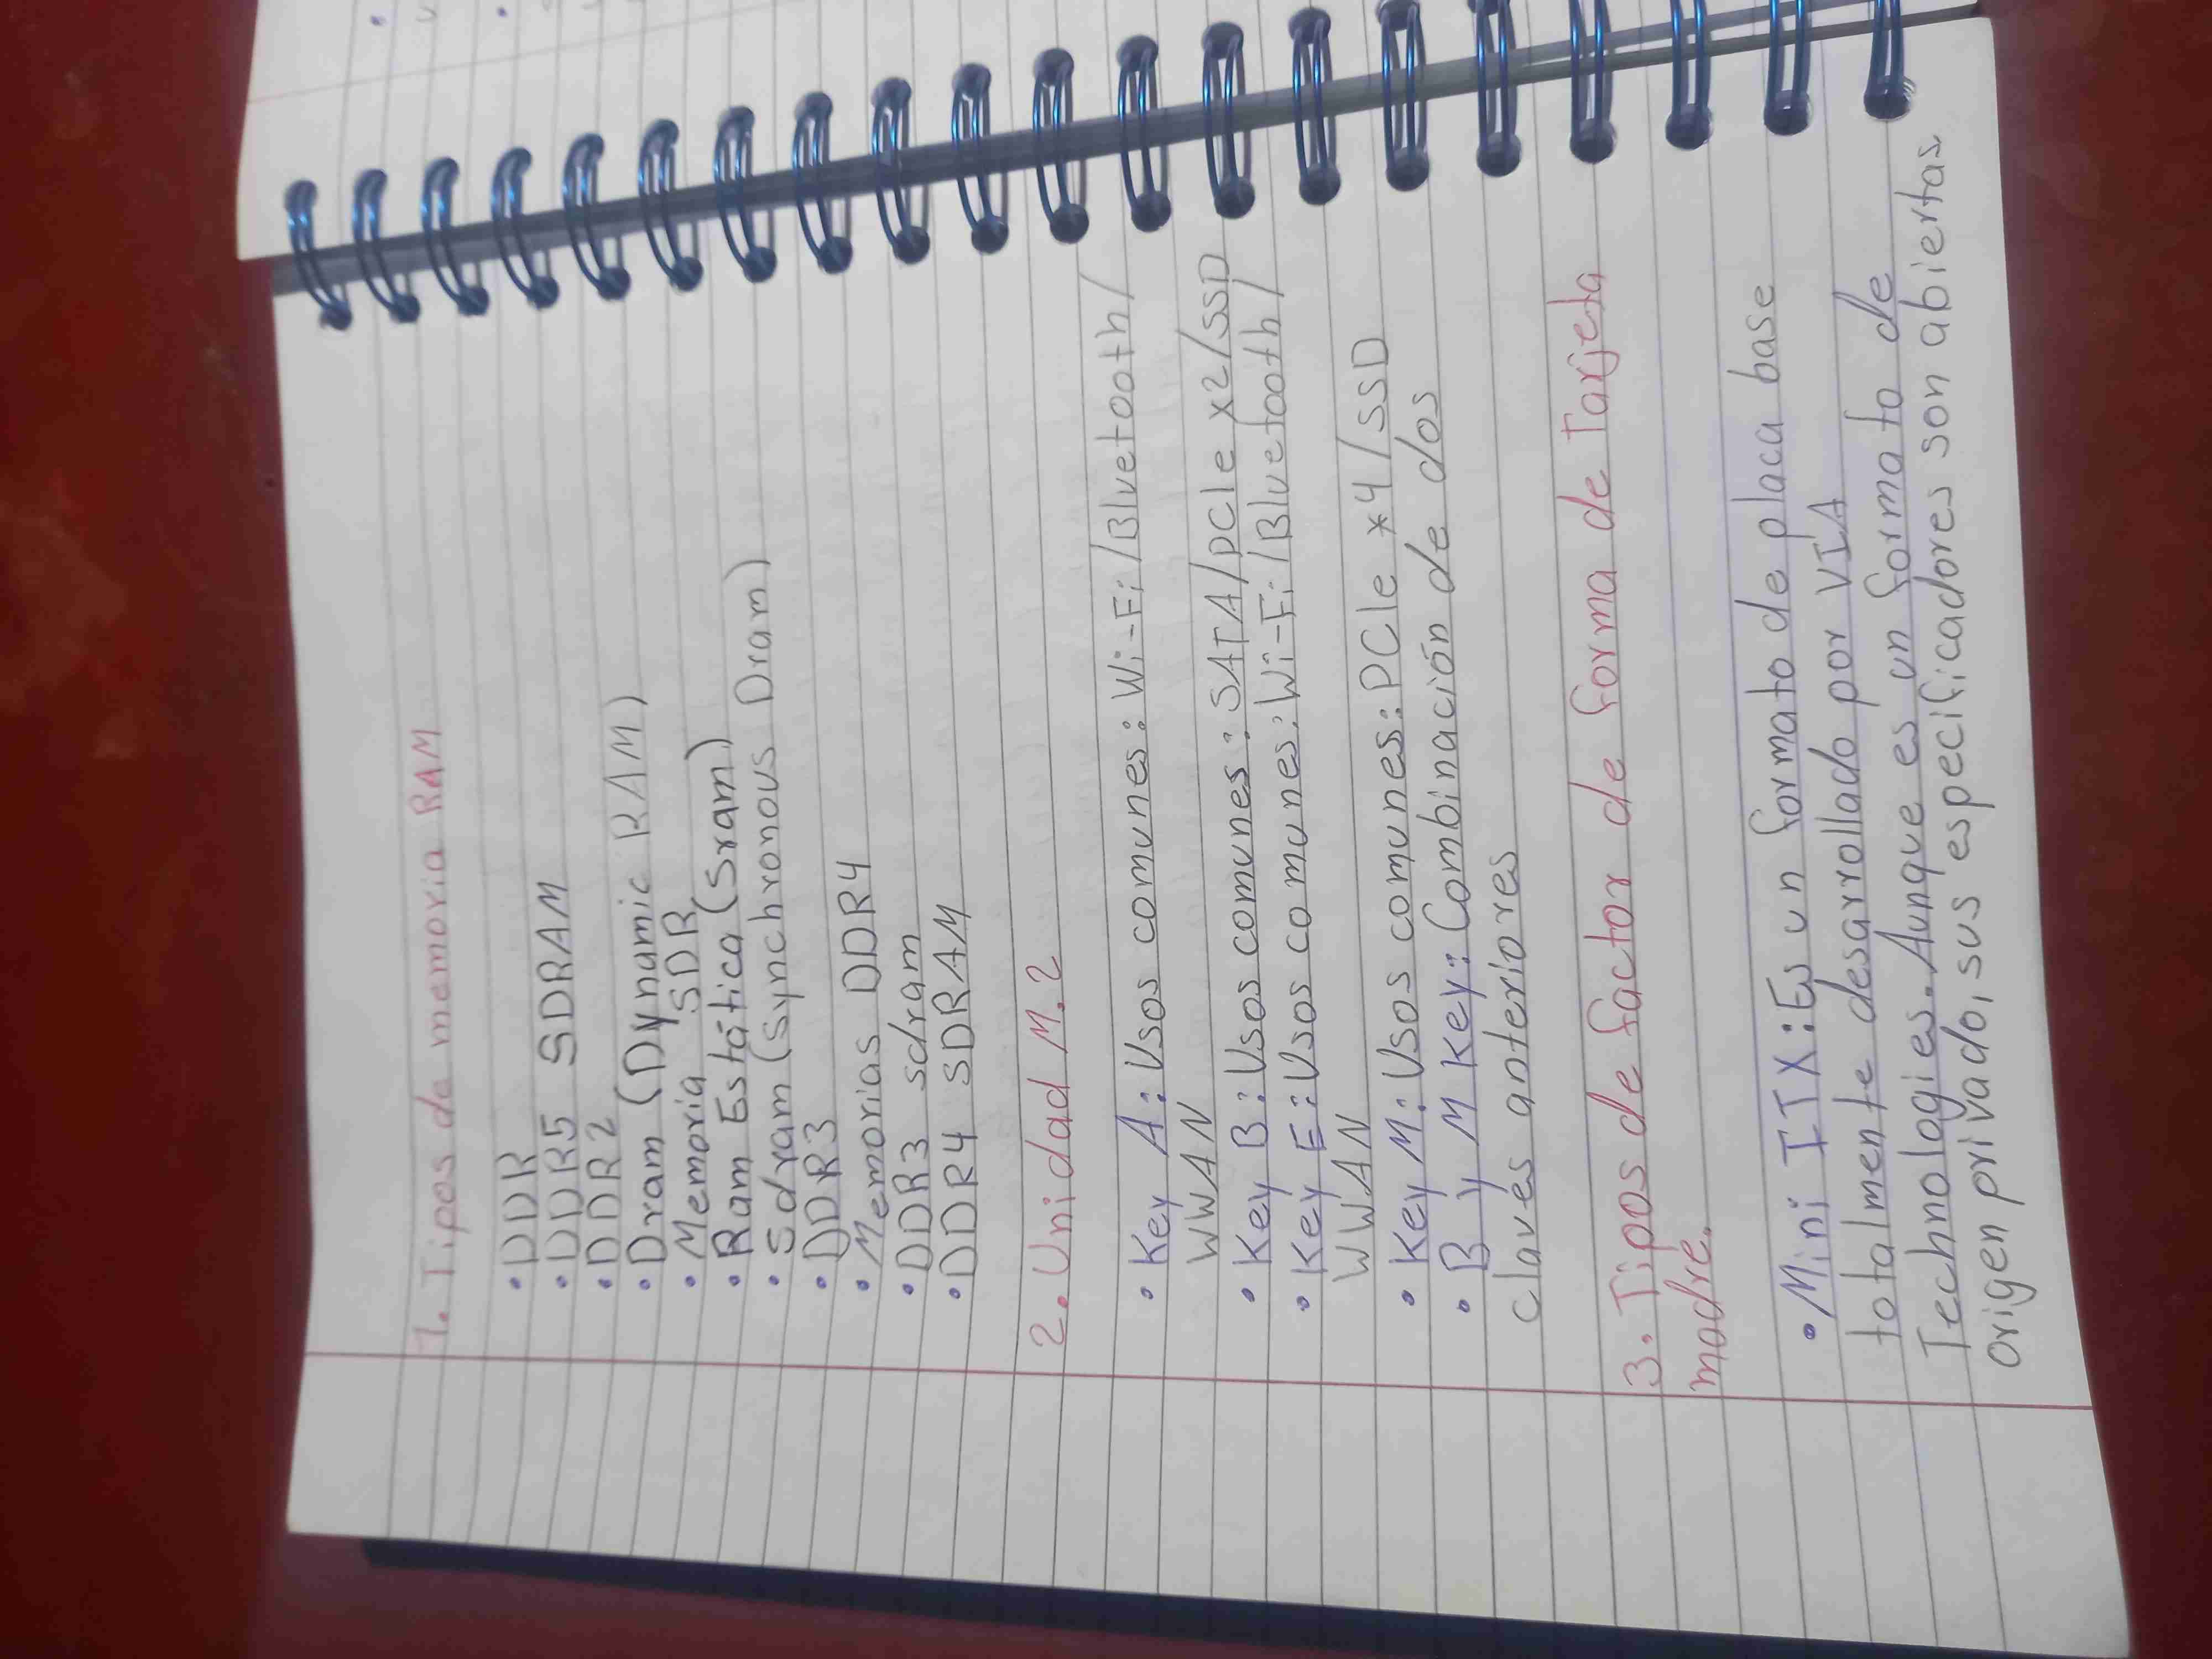 1. Tipos de memoria RAM
• DDR
• DDR5 SDRAM
• DDR2
• Dram (Dynamic RAM)
• Memoria SDR
• Ram Estática (Sram)
• Sdram (Synchronous Dram)
• DDR3
• Memorias DDR4
• DDR3 sdram
• DDR4 SDRAM
2. Unidad M.2
• Key A: Usos comunes: Wi-Fi/Bluetooth/
WWAN
• Key B: Usos comunes: SATA/PCIe x2/SSD
• Key E: Usos comunes: Wi-Fi/Bluetooth/
WWAN
• Key M: Usos comunes: PCIe x4/SSD
• B y M Key: Combinación de dos
claves anteriores
3. Tipos de factor de forma de Tarjeta
madre.
• Mini ITX: Es un formato de placa base
totalmente desarrollado por VIA
Technologies. Aunque es un formato de
origen privado, sus especificadores son abiertas